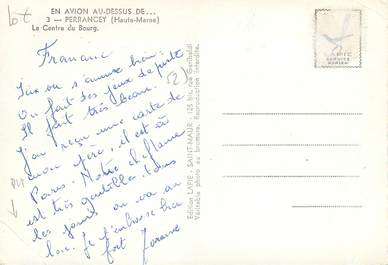 Lot
EN AVION AU-DESSUS DE...
3 — PERRANCEY (Haute-Marne)
Le Centre du Bourg.
Ici on s'amuse bien.
On fait des jeux de piste
Il fait très beau. (2)
J'ai reçu une carte de
mon père, il est à
Paris. Notre
est très gentille. tous
les jours on va au
je t'embrasse bien
fort
Edition LAPIE - SAINT-MAUR - 125 bis, rue Garibaldi
Véritable photo au bromure. Reproduction interdite.
LAPIE
SERVICE
AERIEN